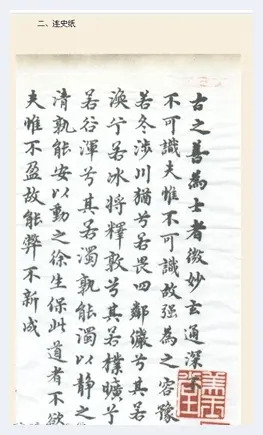 二、连史纸
古之善為士者微妙玄通深
不可識夫惟不可識故強為之容豫
若冬涉川猶兮若畏四鄰儼兮其若
渙兮若冰將釋敦兮其若樸曠兮
若谷渾兮其若濁孰能濁以静之
清孰能安以動之徐生保此道者不欲
夫惟不盈故能弊不新成